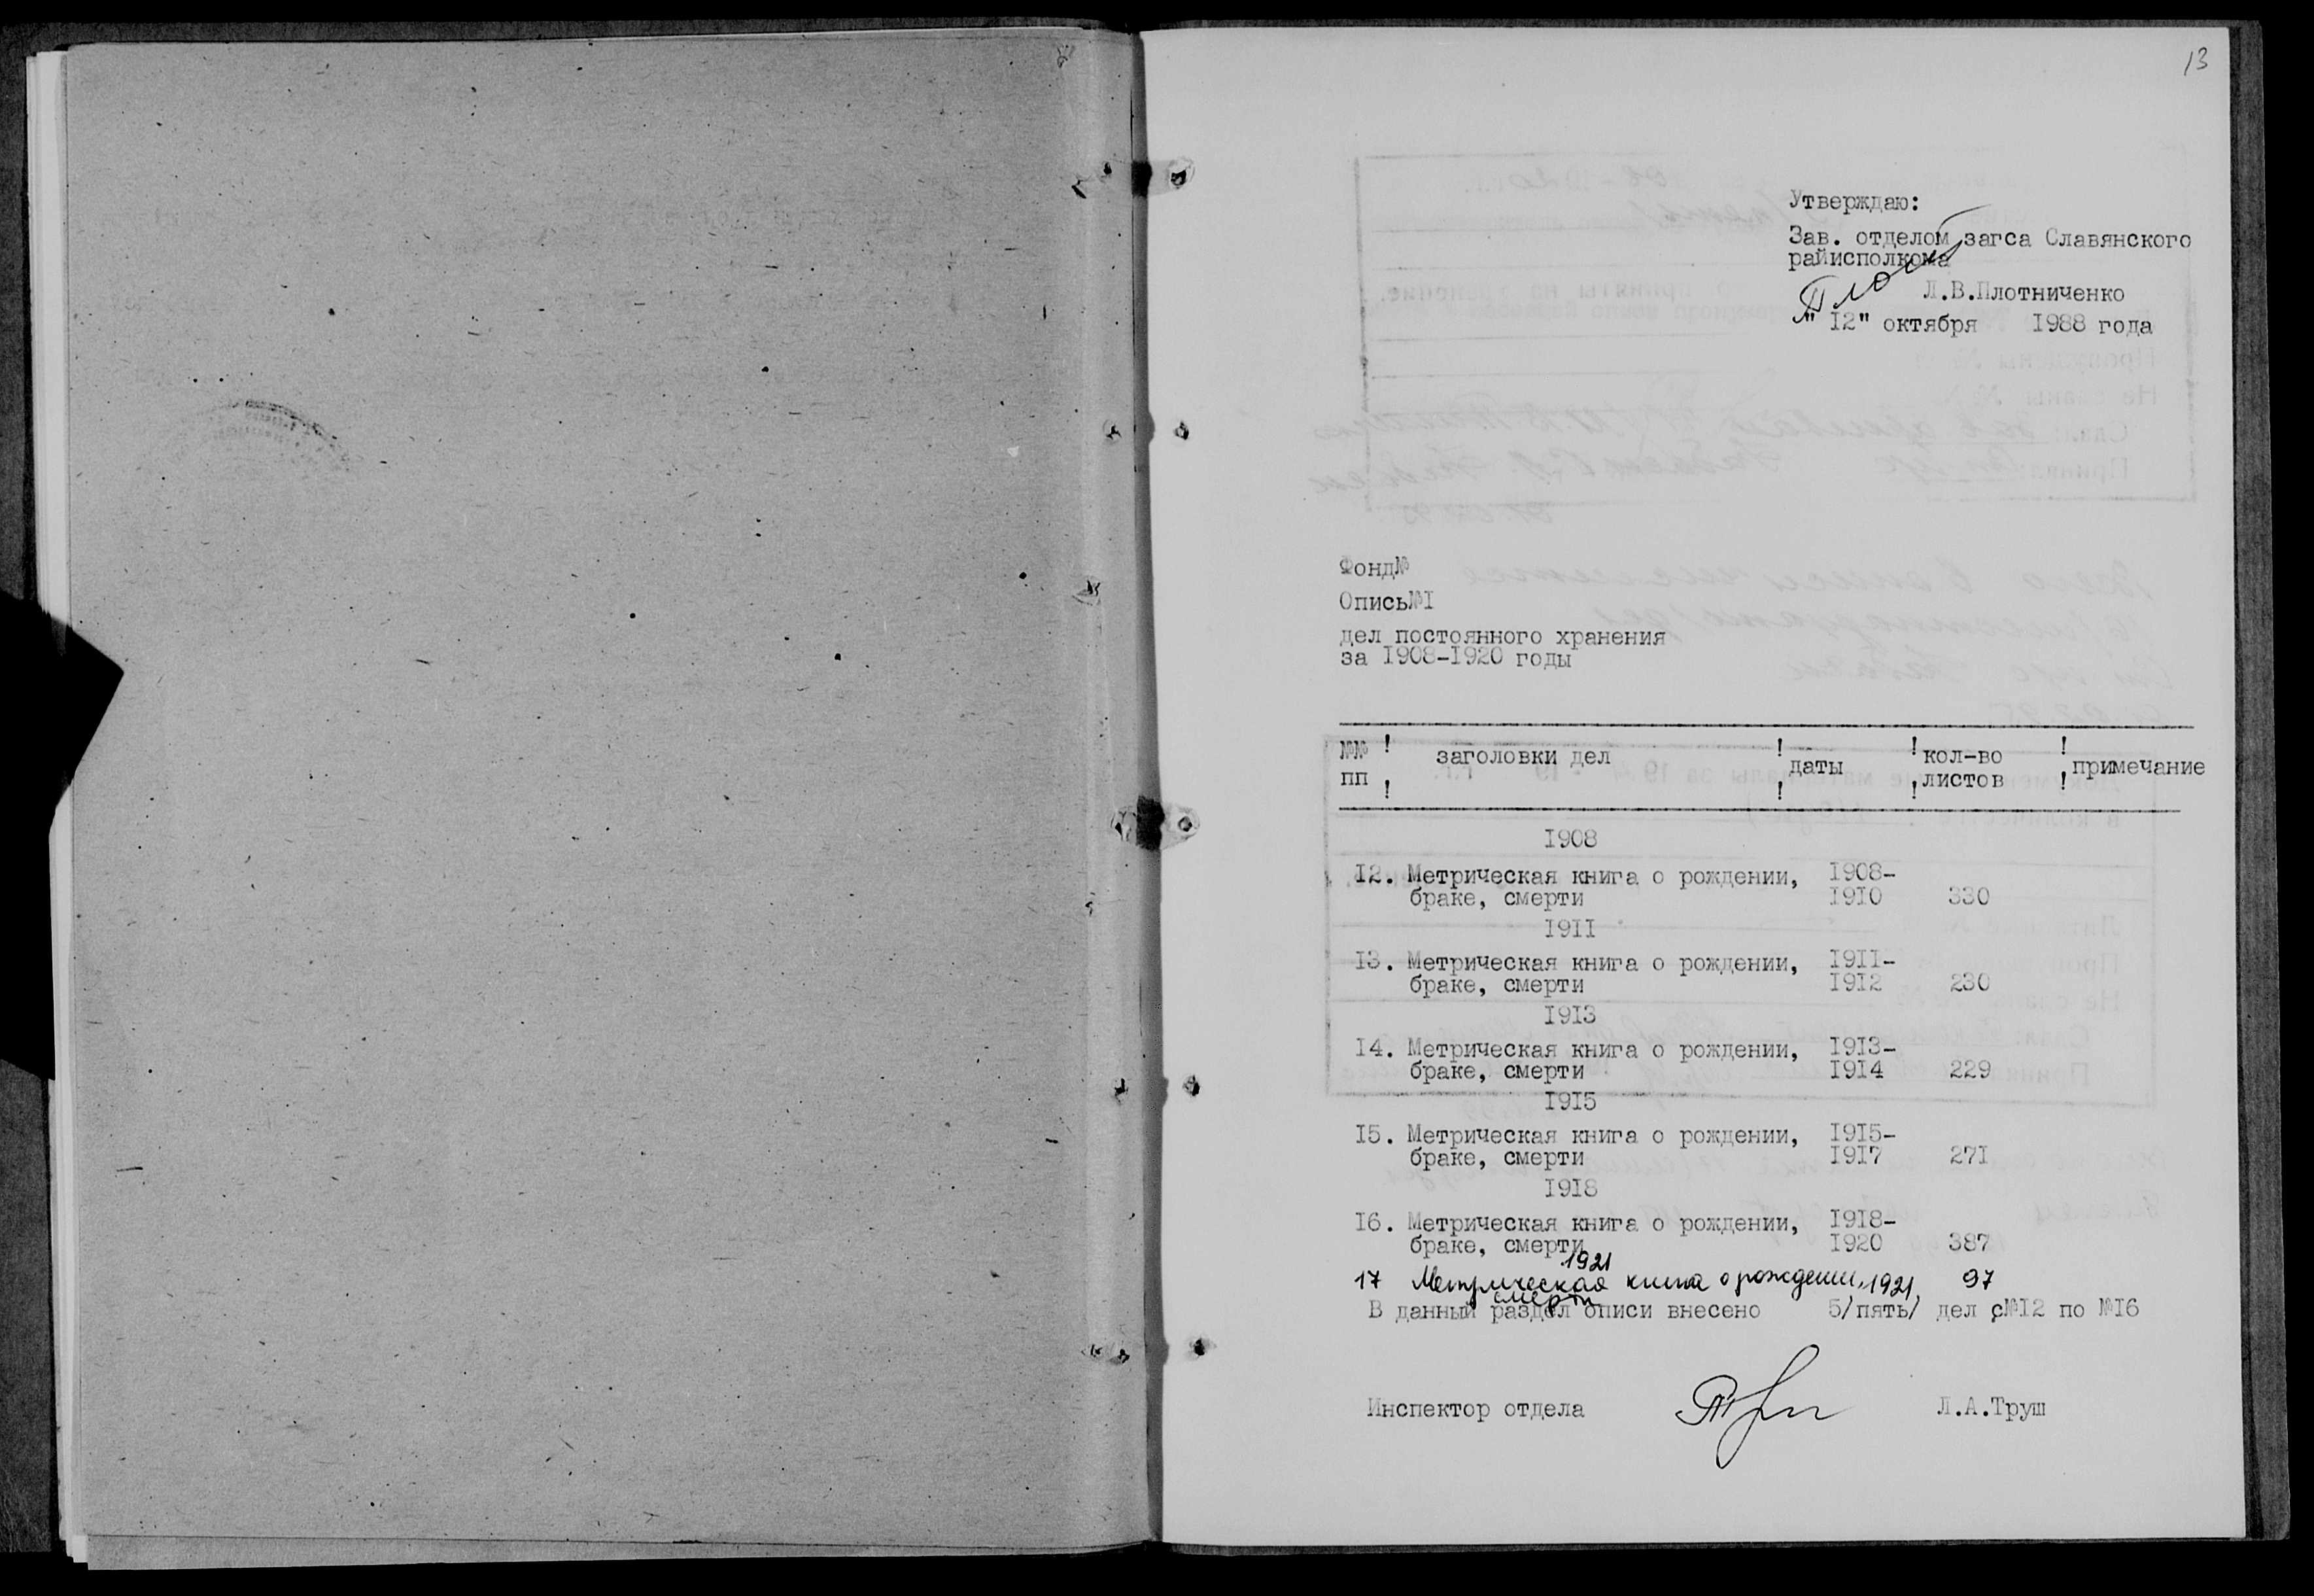 13
Утверждаю:
Зав. отделом загса Славянского
райисполкома
Л.В.Плотниченко
" 12" октября 1988 года
Фонд№
Опись№1
дел постоянного хранения
за 1908-1920 годы
№№ ! заголовки дел ! даты ! кол-во ! примечание
пп ! ! ! листов !
1908
12. Метрическая книга о рождении, 1908-
браке, смерти 1910 330
1911
13. Метрическая книга о рождении, 1911-
браке, смерти 1912 230
1913
14. Метрическая книга о рождении, 1913-
браке, смерти 1914 229
1915
15. Метрическая книга о рождении, 1915-
браке, смерти 1917 271
1918
16. Метрическая книга о рождении, 1918-
браке, смерти 1920 387
1921
17 Метрическая книга о рождении, 1921, 97
смерти
В данный раздел описи внесено 5/пять/ дел с№12 по №16
Инспектор отдела Л.А.Труш